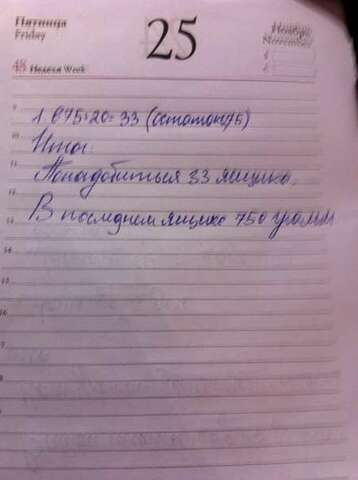 Пятница
Friday
25
Ноябрь
November
48 Неделя Week
9
1 675:20=33 (остаток 75)
10
Итог:
11
Понадобиться 33 ящика.
12
В последнем ящике 750 грамм
14
15